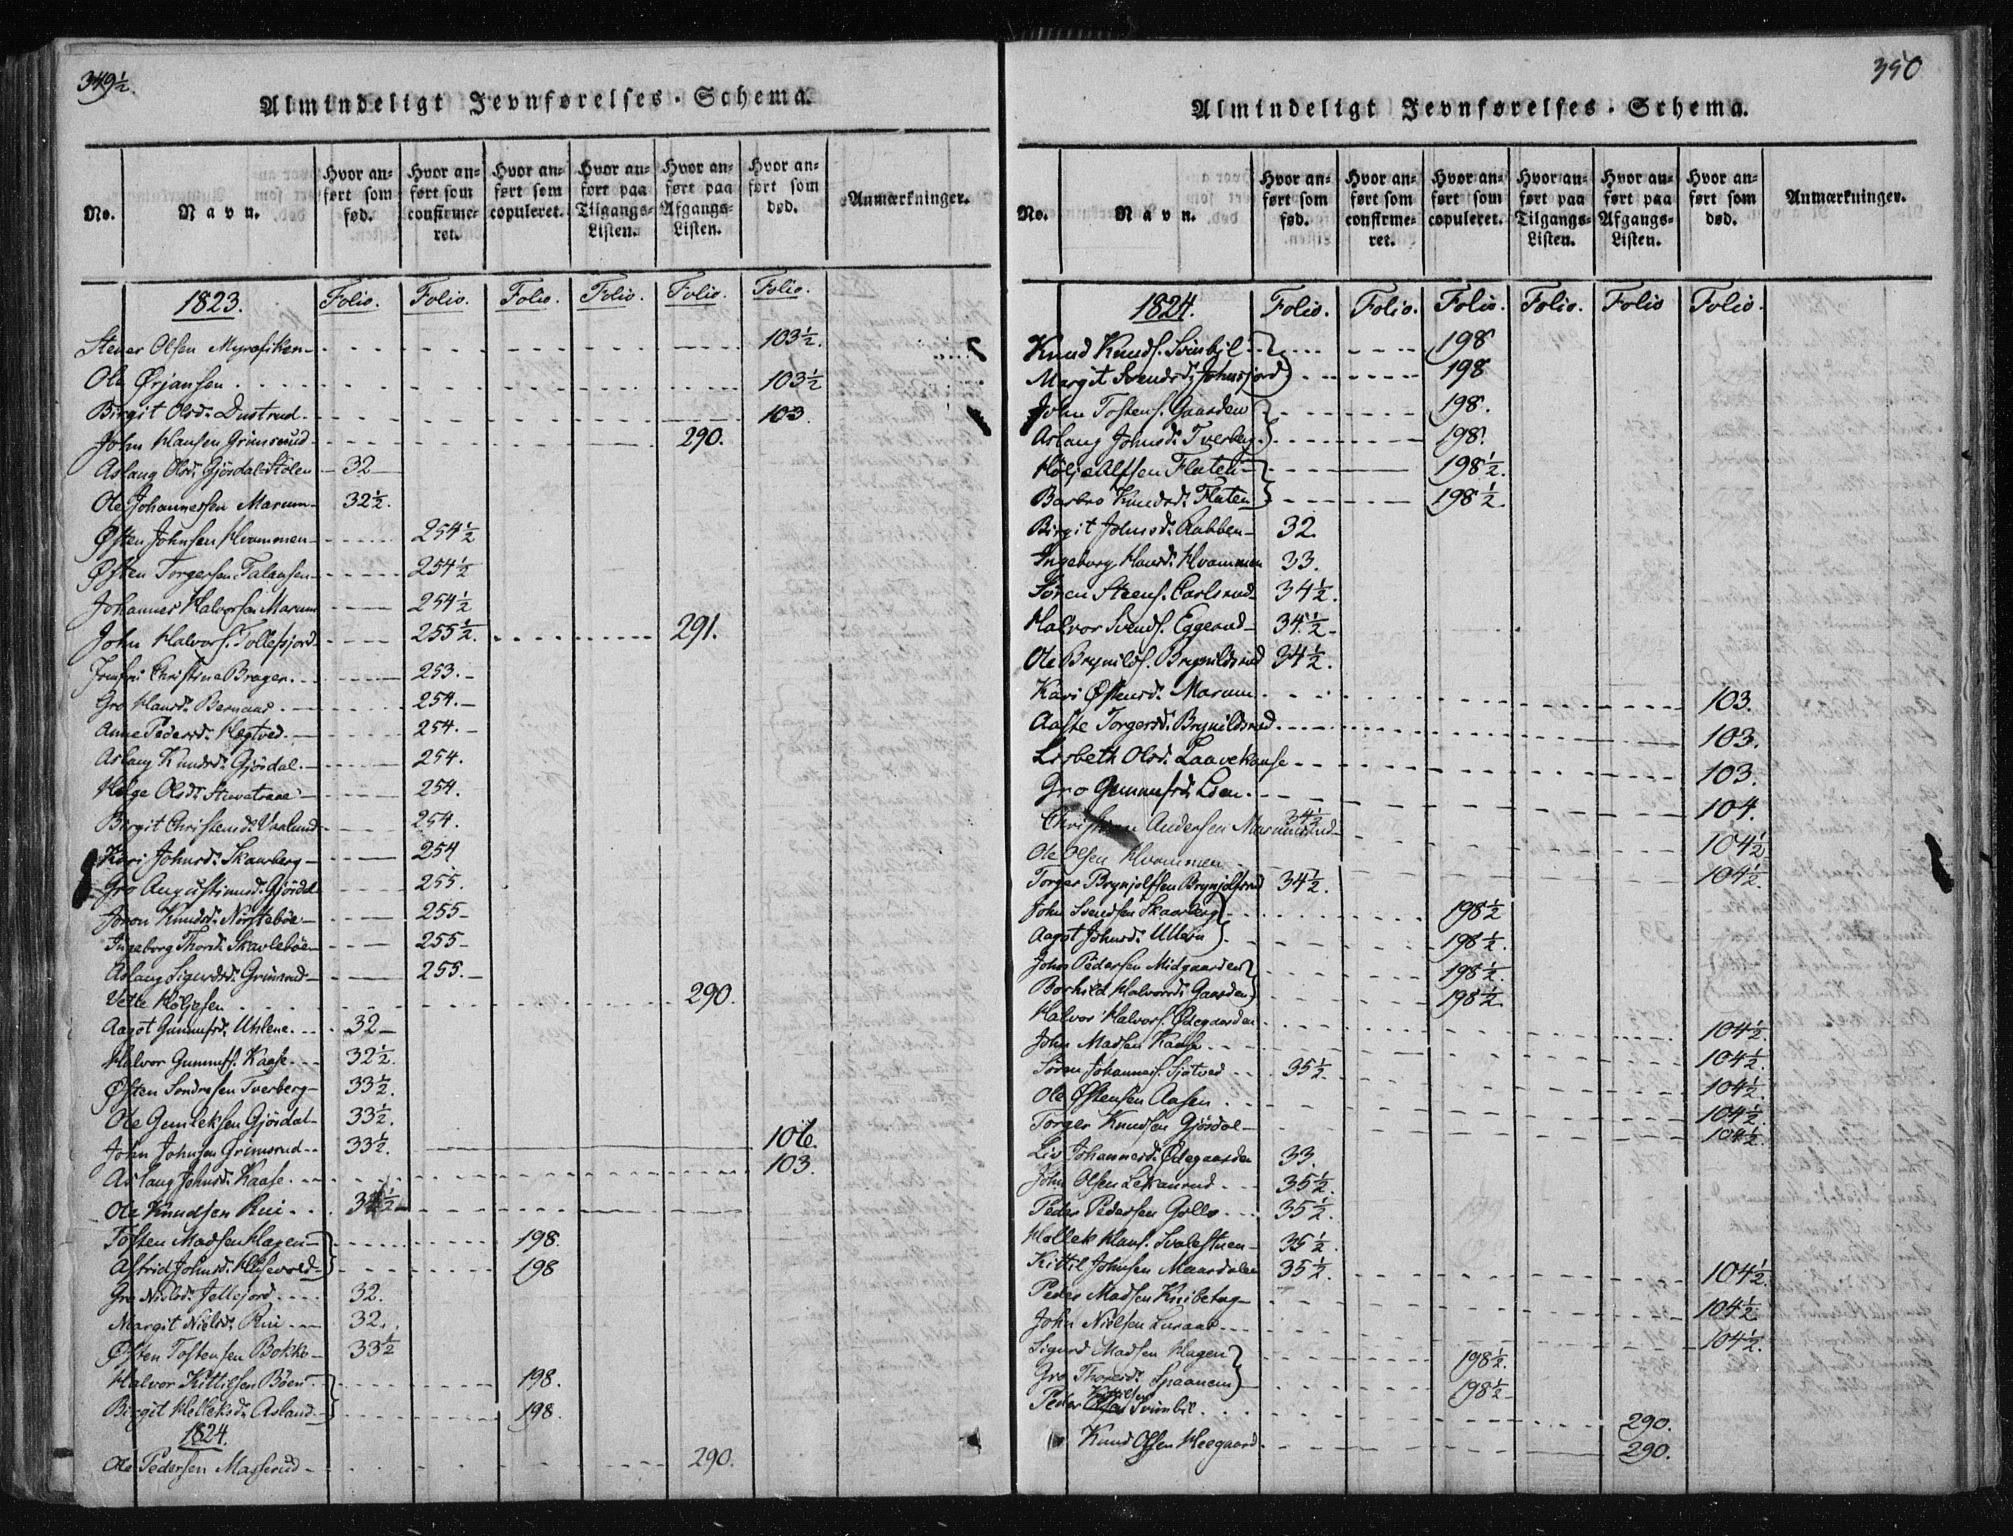 349½.
Almindeligt Jevnførelses-Schema.
No. Navn. Hvor anført som fød. Hvor anført som confirmeret. Hvor anført som copuleret. Hvor anført paa Tilgangs-Listen. Hvor anført paa Afgangs-Listen. Hvor anført som død. Anmærkninger.
1823. Folio. Folio. Folio. Folio. Folio. Folio.
Stener Olsen 103½
Ole Ørjansen 103½
Birgit Olsd. Dustrud 103
John Hansen Grimsrud 290.
Aslaug Olsd. Gjøsdal Stølen 32
Ole Johannessen Marum 32½.
Østen Johnsen Hvammen 254½
Østen Torgersen 254½
Johannes Halvorsen Marum 254½
John Halvors. Tollefsjord 255½. 291.
Jomfru Christine Brager 253.
Gro Hansd. 254.
Anne Pedersd. Hegtved 254.
Aslaug Knudsd. Gjøsdal 254.
Helge Olsd. 254.
Birgit Christensd. 254.
Kari Johnsd. Skaarberg 254
Gro Augustinusd. Gjøsdal 255.
Joron Knudsd. Nørstebøe 255
Ingeborg Thorsd. Skavlebøe 255
Aslaug Sigurdsd. Grimsrud 255.
Vetle Høljesen 290.
Aagot Gunnufsd. Uhlene 32
Halvor Gunnufs. Kaase 32½.
Østen Sondresen Tverberg 33½.
Ole Gunleksen Gjøsdal 33½.
John Johnsen Grimsrud 33½. 106.
Aslaug Johnsd. Kaase 103.
Ole Knudsen Rui 34½
Tosten Madsen Hagen 198.
Astrid Johnsd. 198
Gro Nielsd. Jellesjord 32.
Margit Nielsd. Rui 32.
Østen Tostensen Bakke 33½
Halvor Kittilsen Bøen 198.
Birgit Helleksd. Asland 198.
1824.
Ole Pedersen Masserud 290.
350
Almindeligt Jevnførelses-Schema.
No. Navn. Hvor anført som fød. Hvor anført som confirmeret. Hvor anført som copuleret. Hvor anført paa Tilgangs-Listen. Hvor anført paa Afgangs-Listen. Hvor anført som død. Anmærkninger.
1824. Folio. Folio. Folio. Folio. Folio Folio.
Knud Knuds. Svinbil 198
Margit Svendsd. Johnsjord 198
John Tostens. Gaarden 198.
Aslaug Johnsd. Tverberg 198.
Hølje Alfsen Flaten 198½.
Barbro Knudsd. Flaten 198½.
Birgit Johnsd. Rabben 32.
Ingeborg Hansd. Hvammen 33.
Søren Steens. Carlsrud 34½.
Halvor Svends. Eggerud 34½.
Ole Brynilds. Brynildsrud 34½.
Kari Østensd. Marum 103.
Aaste Torgersd. Brynildsrud 103.
Lisbeth Olsd. 103.
Gro Gunnufsd. Lien 104.
Christian Andersen 34½ 104½
Ole Olsen Hvammen 104½.
Torger Brynjolfsen Brynjolfsrud 34½.
John Svendsen Skaarberg 198½
Aagot Johnsd. 198½.
John Pedersen Midgaarden 198½.
Borhild Halvorsd. Gaarden 198½.
Halvor Halvors. Ødegaarden 104½.
John Madsen Kaase 104½.
Søren Johannes. Sjøtved 35½. 104½.
Ole Østensen Aasen 104½.
Torger Knudsen Gjøsdal 104½.
Liv Johannesd. Ødegaarden 33.
John Olsen 35½.
Peder Pedersen Gollo 35½.
Hellek Hans. 35½.
Kittil Johnsen Maardalen 35½. 104½.
Peder Madsen 104½.
John Nielsen Luraas 104½.
Sigurd Madsen Hagen 198½.
Gro Thoresd. Spaanem 198½
Peder Svinbil 290.
Knud Olsen Heegaard 290.